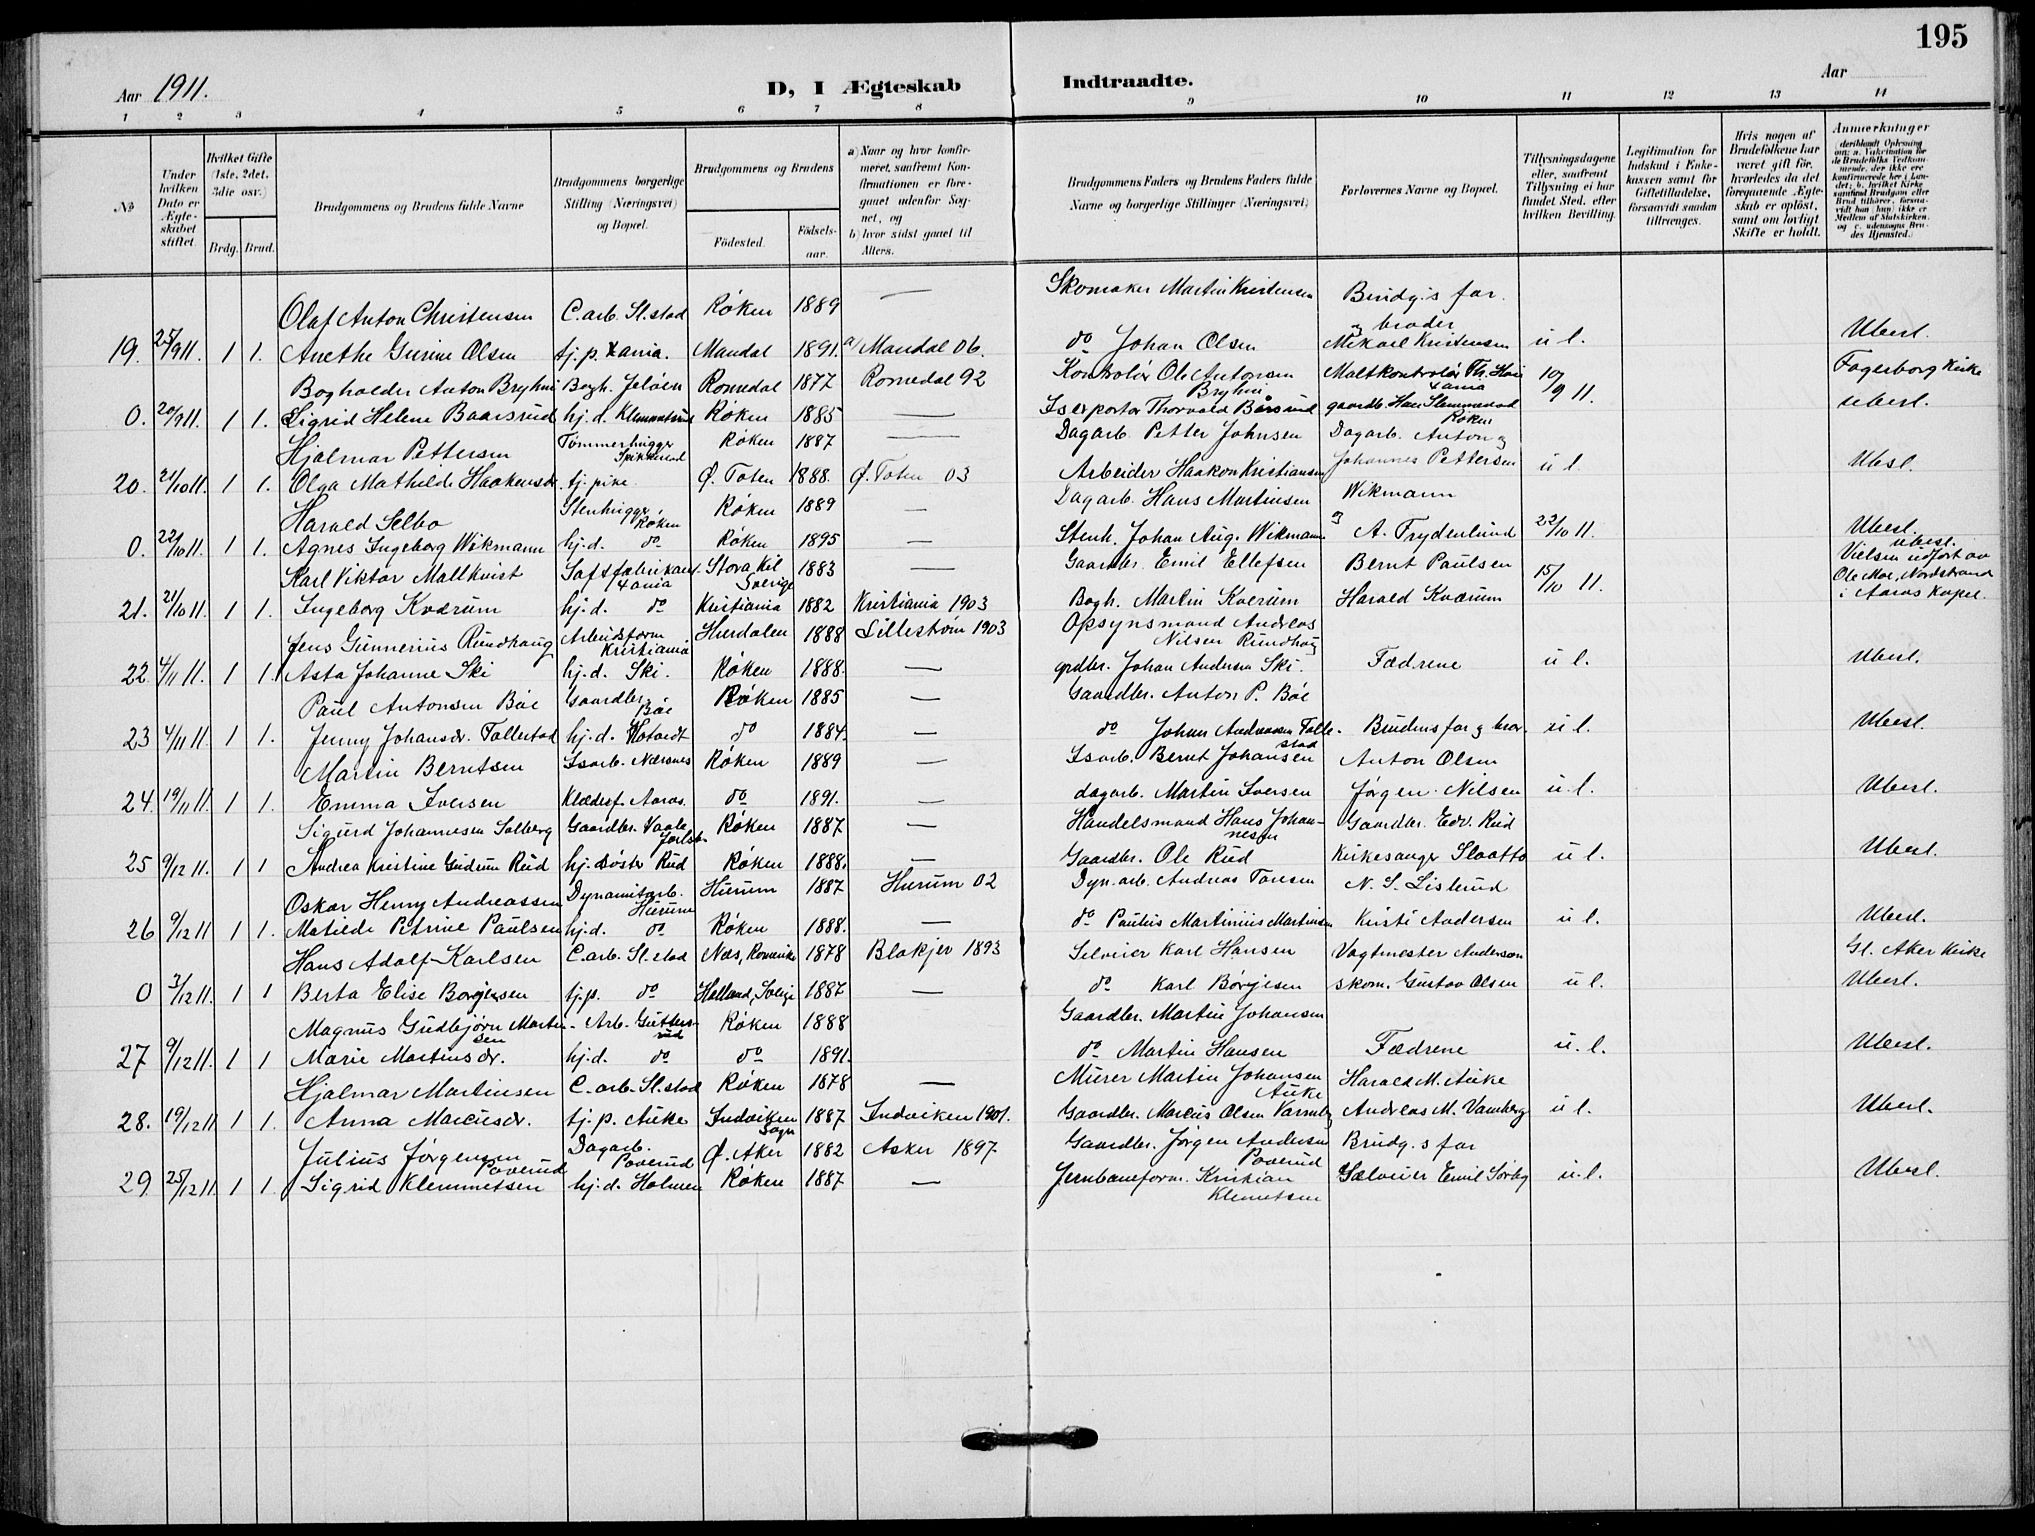 195
Aar 1911.
D, I Ægteskab Indtraadte.
Aar
1 2 3 4 5 6 7 8 9 10 11 12 13 14
№
Under hvilken Dato er Ægteskabet stiftet.
Hvilket Gifte (1ste, 2det, 3die osv.)
Brdg. Brud.
Brudgommens og Brudens fulde Navne
Brudgommens borgerlige Stilling (Næringsvei) og Bopæl.
Brudgommens og Brudens
Fødested. Fødselsaar.
a) Naar og hvor konfirmeret, saafremt Konfirmationen er foregaaet udenfor Sognet, og
b) hvor sidst gaaet til Alters.
Brudgommens Faders og Brudens Faders fulde Navne og borgerlige Stillinger (Næringsvei)
Forlovernes Navne og Bopæl.
Tillysningsdagene eller, saafremt Tillysning ei har fundet Sted, efter hvilken Bevilling.
Legitimation for Indskud i Enkekassen samt for Giftetilladelse, forsaavidt saadan tiltrænges.
Hvis nogen af Brudefolkene har været gift før, hvorledes da det foregaaende Ægteskab er opløst, samt om lovligt Skifte er holdt.
Anmerkninger (deriblandt Oplysning om: a. Vakcination for de Brudefolks Vedkommende, der ikke ere konfirmerede her i Landet; b. hvilket Kirke samfund Brudgom eller Brud tilhører, forsaavidt han (hun) ikke er Medlem af Statskirken, og c. udensogns Brudes Hjemsted.)
Olaf Anton Christensen C. arb. Sl.stad Røken 1889 — Skomaker Martin Kristensen Brudg.s far.
og broder
19. 25/9 11. 1 1. Anethe Gurine Olsen tj. p. Xania. Mandal 1891. a) Mandal 06. do Johan Olsen Mikael Kristensen u l. Ubesl.
Bogholder Anton Bryhni Bogh. Jeløen Romedal 1877 Romedal 92 Kontrolør Ole Antonsen Bryhni Maltkontrolør Th. Xania 10/9 11. Fagerborg Kirke
0. 20/9 11. 1 1. Sigrid Helene Baarsrud hj. d. Klemmetsrud Røken 1885 — Isexportør Thorvald Bårsrud gaardb. Hans Slemmestad Røken ubesl.
Hjalmar Pettersen Tømmerhugger Spikkestad Røken 1887 — Dagarb. Petter Johnsen Dagarb. Anton og
20. 21/10 11. 1 1. Olga Mathilde Haakensdr. tj. pike. Ø. Toten 1888. Ø. Toten 03 Arbeider Haakon Kristiansen Johannes Pettersen u l. Ubesl.
Harald Selbo Stenhugger Røken Røken 1889 — Dagarb. Hans Martinsen Wikmann
0. 22/10 11. 1 1. Agnes Ingeborg Wikmann hj. d. do Røken 1895 — Stenh. Johan Aug. Wikmann og A. Frydenlund 22/10 11. Ubesl.
Karl Viktor Mallkvist Saftfabrikant Xania Stora Kil Sverige 1883 — Gaardbr. Emil Ellefsen Bernt Paulsen 15/10 11. ubesl. Vielsen udført av Ole Moe, Nordstrand
21. 21/10 11. 1 1. Ingeborg Kværum hj. d. do Kristiania 1882 Kristiania 1903 Bogh. Martin Kverum Harald Kværum i Aaros Kapel.
Jens Gunnerius Rundhaug Arbeidsform Kristiania Hurdalen 1888 Lillestrøm 1903 Opsynsmand Andreas Nilsen Rundhaug
22 4/11 11. 1 1. Asta Johanne Ski hj. d. Ski. Røken 1888. — grdbr. Johan Andersen Ski. Fædrene u l. Ubesl.
Paul Antonsen Bøe Gaardbr. Bøe Røken 1885 Gaardbr. Anton P. Bøe
23 4/11 11. 1 1. Jenny Johansdr. Follestad hj. d. do 1884. — do Johan Andreasen Follestad Brudens far og bror. u l. Ubesl.
Martin Berntsen Isarb. Nærsnes Røken 1889 — Isarb. Bernt Johansen Anton Olsen
24. 19/11 11. 1 1. Emma Iversen Klædesf. Aaros. do 1891. — dagarb. Martin Iversen Jørgen Nilsen u. l. Ubesl.
Sigurd Johannesen Solberg Gaardbr. Vaale Jarlsb. Røken 1887 — Handelsmand Hans Johannesen Gaardbr. Edv. Rud
25 9/12 11. 1 1 Andrea Kristine Gudrun Rud hj. søster Rud Røken 1888. — Gaardbr. Ole Rud Kirkesanger Slaatto u l. Ubesl.
Oskar Henry Andreassen Dynamitarb. Hurum Hurum 1887 Hurum 02 Dyn.arb. Andreas Toresen N. S. Lislerud
26 9/12 11 1 1. Matilde Petrine Paulsen hj. d. do Røken 1888. — do Paulus Martinius Martinsen Kristi Andersen u l. Ubesl.
Hans Adolf Karlsen C. arb. Sl. stad Næs, Romerike 1878 Blakjer 1893 Selveier Karl Hansen Vagtmester Anderson Gl. Aker Kirke
0 3/12 11. 1 1 Berta Elise Børgesen tj. p. do Halland, Sverige 1887 — do Karl Börgesen skom. Gustav Olsen u l. Ubesl.
Magnus Gudbjørn Martinsen Arb. Guttersrud Røken 1888 Gaardbr. Martin Johansen
27 9/12 11. 1 1 Marie Martinsdr. hj. d. do do 1891. do Martin Hansen Fædrene u. l. Ubesl.
Hjalmar Martinsen C. arb. Sl. stad Røken 1878 — Murer Martin Johansen Auke Harald M. Auke
28. 19/12 11 1 1. Anna Marcusdr. tj. p. Auke Indviken Sogn 1887 Indviken 1901. Gaardbr. Marcus Olsen Andreas M. u l. Ubesl.
Julius Jørgensen Poverud Dagarb. Poverud Ø. Aker 1882 Asker 1897 Gaardbr. Jørgen Andersen Poverud Brudg.s far
29 25/12 11 1 1. Sigrid Klemmetsen hj. d. Holmen Røken 1887 — Jernbaneform. Kristian Klemetsen Selveier Emil Sørby u. l. Ubesl.